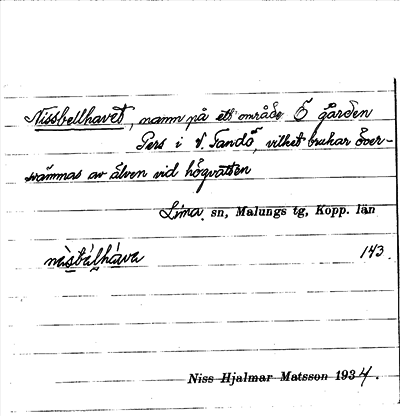 Nissbellhavet, namn på ett område Ö gården
Pers i N. Tandö, vilket brukar över-
svämmas av älven vid högvatten
Lima sn, Malungs tg, Kopp. län
143.
Niss Hjalmar Matsson 1934.